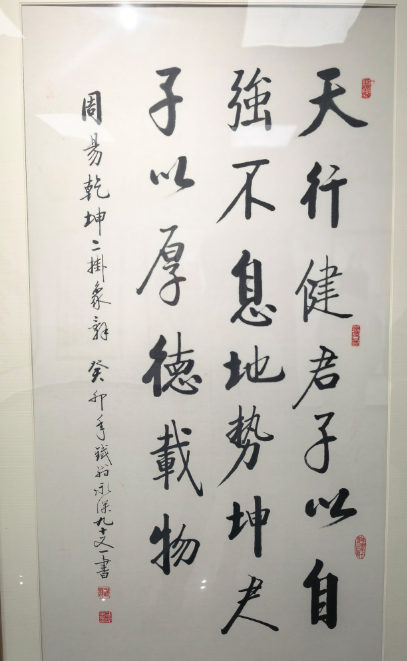 天行健君子以自
強不息地勢坤君
子以厚德載物
周易乾坤二掛象辭 癸卯年鐵 永 九十又一書